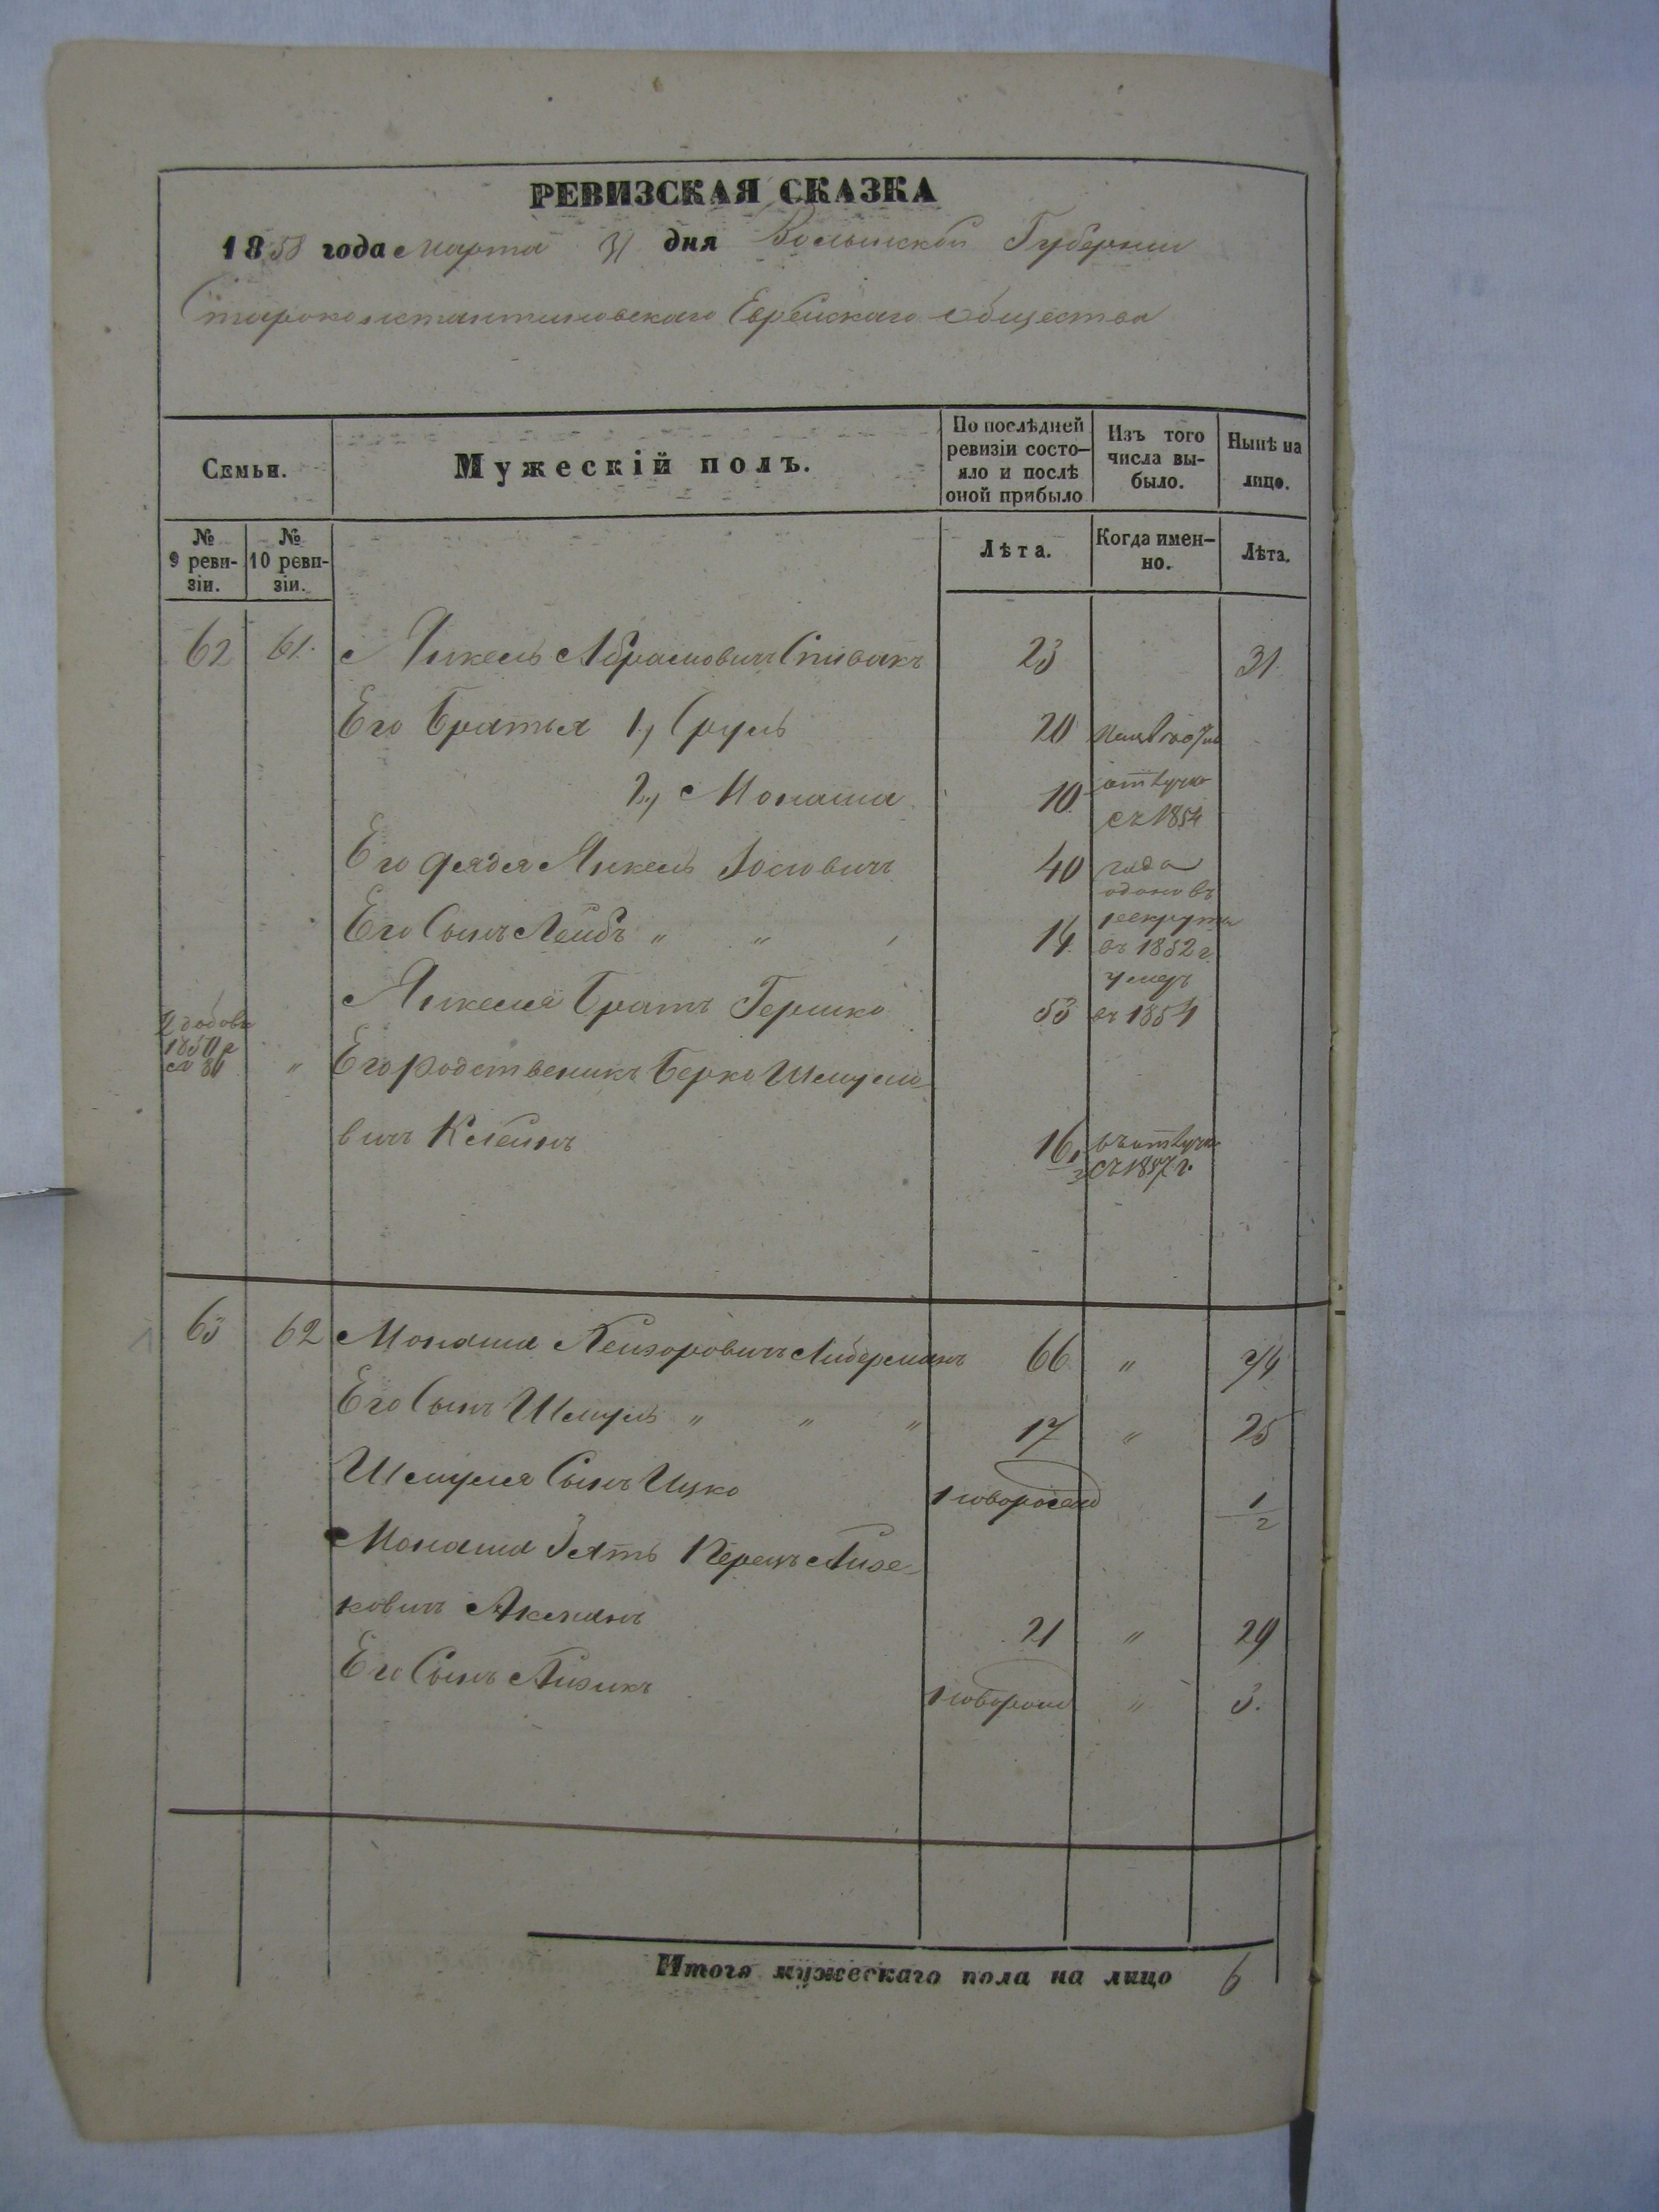 РЕВИЗСКАЯ СКАЗКА
1858 года Марта 31 дня Волынской Губернии
Староконстантиновскаго Еврейскаго Общества
Семьи.
Мужескій полъ.
По послѣдней ревизіи состо-
яло и послѣ оной прибыло
Изъ того числа вы-
было.
Нынѣ на лицо.
№ 9 реви-
зіи.
№ 10 реви-
зіи.
Лѣта.
Когда имен-
но.
Лѣта.
62 61. Янкель Абрамовичъ Спивакъ 23 31
Его Братья 1, Сруль 20
2, Монаша 10 отлучке
съ 1854
Его дядя Янкель Иосіовичъ 40 года
Его Сынъ Лейбъ " " 14 рекруты
въ 1852 г.
умеръ
Янкеля Братъ Гершко 53 въ 1854
" Его родственикъ Берко Шмулио
вичъ Клеинъ 16 въ отлучке
съ 1857 г.
63 62 Монаша Леизоровичъ Либерманъ 66 " 74
Его Сынъ Шмуль " " " 17 " 25
Шмуля Сынъ Ицко 1/2
Монаша Зять Перецъ Аизе-
ковичъ Акснанъ 21 " 29
Его Сынъ Аизикъ " 3.
Итого мужескаго пола на лицо 6